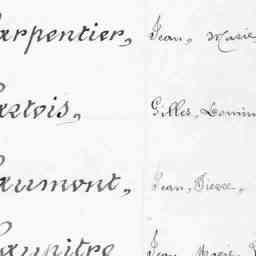 arpentier, Jean, Marie
astois, Gilles, Domin
aumont, Jean, Pierre,
aupitre Jean, Marie